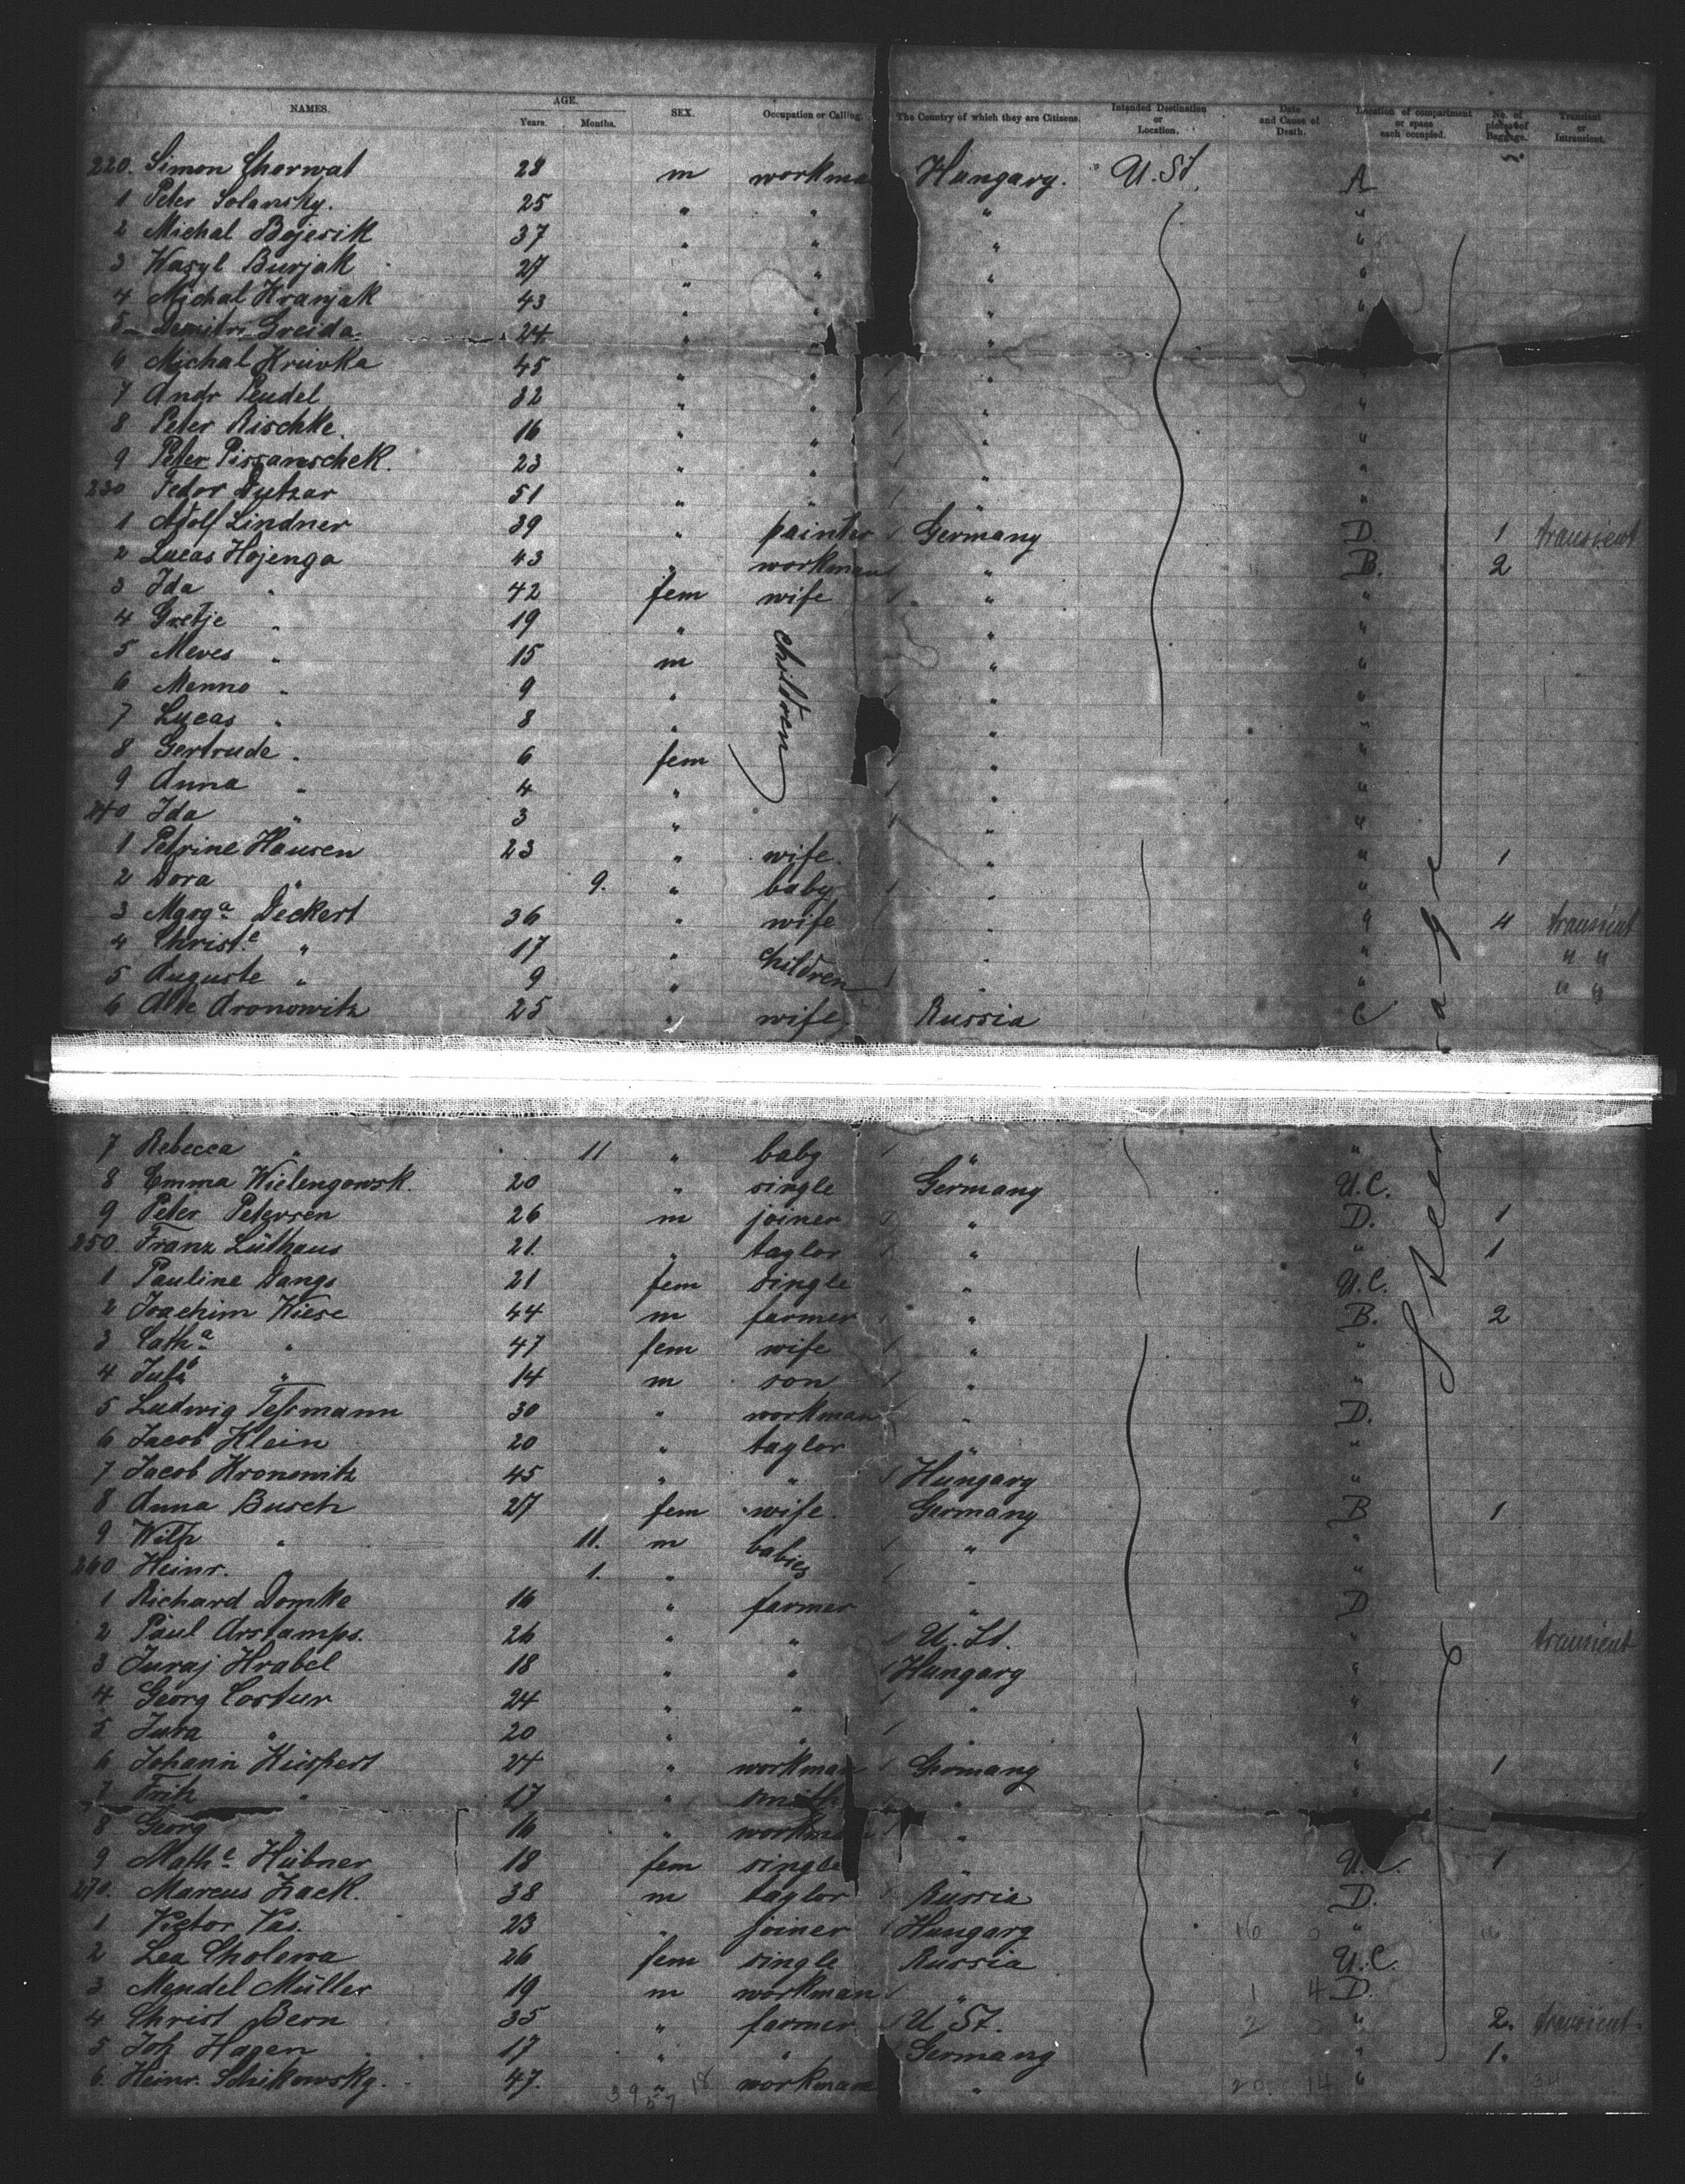 NAMES. AGE. Years. Months. SEX. Occupation or Calling. The Country of which they are Citizens. Intended Destination or Location. Date and Cause of Death. Location of compartment or space each occupied. No. of pieces of Baggage. Transient or Intransient.
220. Simon Chorwat 28 m workma Hungary. U. St. A
1 Peter Solansky. 25 " " " "
2 Michal Bojesik 37 " " " "
3 Wasyl Burjak 27 " " " "
4 Michal Hranjak 43 " " " "
5 Demitri Greida 24 " " "
6 Michal Hruvka 45 " " "
7 Andr Pendel 32 " " " "
8 Peter Rischke. 16 " " " "
9 Peter Pissanschek. 23 " " " "
230 Fedor Dutzar 51 " " " "
1 Adolf Lindner 39 " painter Germany D. 1 transient
2 Lucas Hojenga 43 " workman " B. 2
3 Ida " 42 fem wife " "
4 Gretje " 19 " children " "
5 Meves " 15 m " "
6 Menno " 9 " " "
7 Lucas " 8 " " "
8 Gertrude " 6 fem " "
9 Anna " 4 " " "
240 Ida " 3 " " "
1 Petrine Hansen 23 " wife. " " 1
2 Dora " 9. " baby " "
3 Marg.a Deckert 36 " wife " " 4 transient
4 Christ.e " 17 " children " " " "
5 Auguste " 9 " " " " "
6 Aronowitz 25 " wife Russia C
7 Rebecca " 11 " baby " "
8 Emma Wielengowsk. 20 " single Germany U.C.
9 Peter Petersen 26 m joiner " D. 1
250. Franz Lüthaus 21. " taylor " " 1
1 Pauline Dangs 21 fem single " U.C.
2 Joachim Wiese 44 m farmer " B. 2
3 Cath.a " 47 fem wife " "
4 " 14 m son " "
5 Ludwig Tessmann 30 " workman " D.
6 Jacob Klein 20 " taylor " "
7 Jacob Kronowitz 45 " " Hungary "
8 Anna Busch 27 fem wife. Germany B 1
9 Wilh " 11. m babies " "
260 Heinr. " 1. " " "
1 Richard Domke 16 " farmer " D
2 Paul Arstamps. 26 " " U. St. " transient
3 Juraj Hrabel 18 " " Hungary "
4 Georg Costur 24 " " " "
5 Jura " 20 " " " "
6 Johann Küspert 24 " workman Germany " 1
7 Fritz " 17 " smith " "
8 Georg " 16 " workman "
9 Math.e Hübner 18 fem single " U.C. 1
270. Marcus Zack. 38 m taylor Russia D.
1 Victor Vas. 23 " joiner Hungary "
2 Lea Cholewa 26 fem single Russia U.C.
3 Mendel Müller 19 m workman " D.
4 Christ Bern 35 " farmer U St. " 2. transient
5 Joh Hagen 17 " " Germany " 1.
6. Heinr. Schikowsky. 47. " workman " "
Steerage